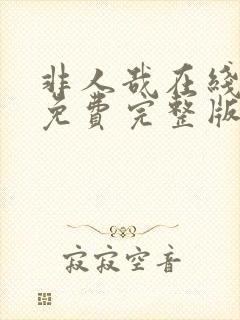 非人哉在线
免费完整版
寂寂空音